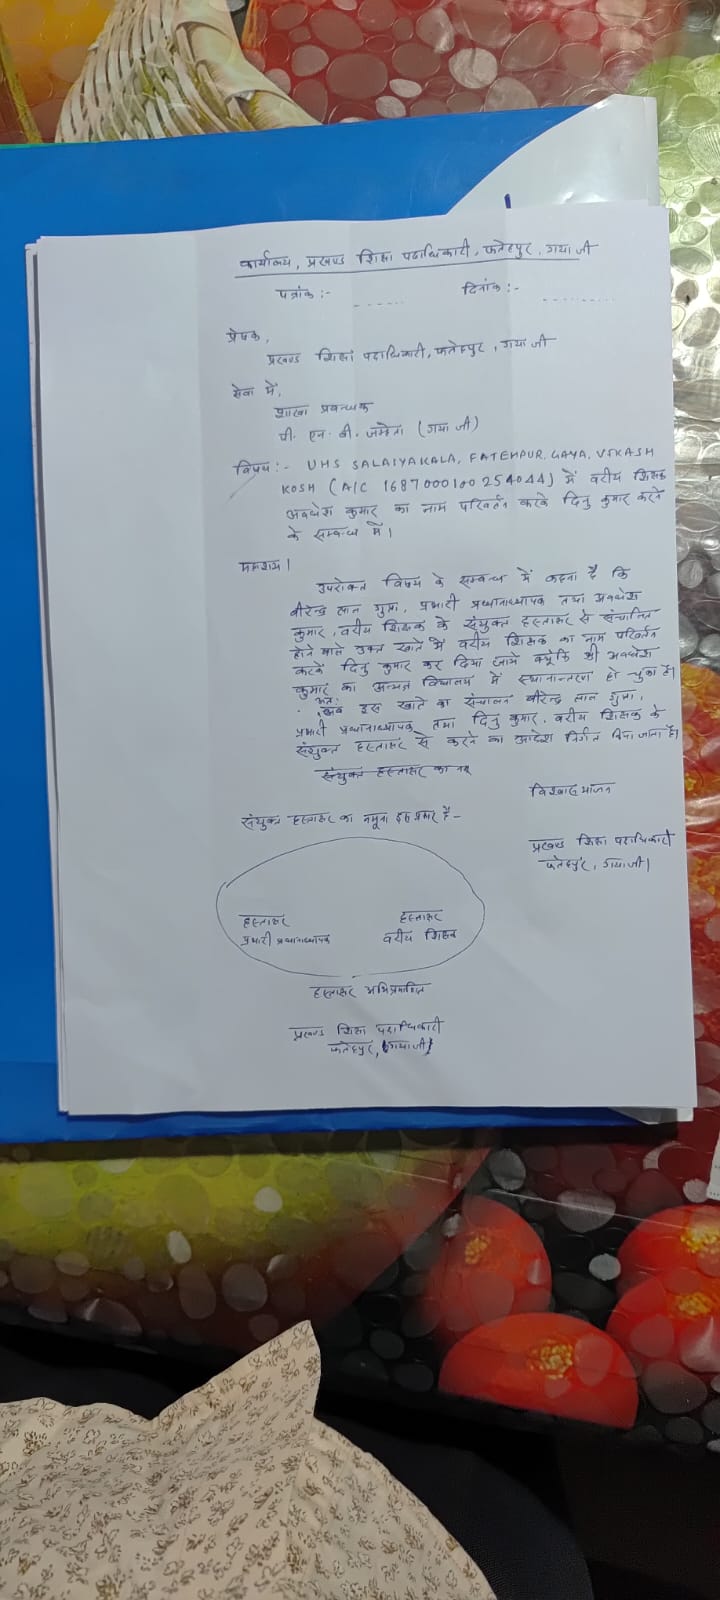 कार्यालय, प्रखण्ड शिक्षा पदाधिकारी, फतेहपुर, गया जी
पत्रांक :- ...... दिनांक :- ..........
प्रेषक,
प्रखण्ड शिक्षा पदाधिकारी, फतेहपुर, गया जी
सेवा में,
शाखा प्रबन्धक
पी. एन. बी. जम्हेता (गया जी)
विषय :- UHS SALAIYAKALA, FATEHPUR, GAYA, VIKASH
KOSH (A/C 1687000100254044) में वरीय शिक्षक
अवधेश कुमार का नाम परिवर्तन करके दिनु कुमार करने
के सम्बन्ध में।
महाशय।
उपरोक्त विषय के सम्बन्ध में कहना है कि
बीरेन्द्र लाल गुप्ता, प्रभारी प्रधानाध्यापक तथा अवधेश
कुमार, वरीय शिक्षक के संयुक्त हस्ताक्षर से संचालित
होने वाले उक्त खाते में वरीय शिक्षक का नाम परिवर्तन
करके दिनु कुमार कर दिया जाये क्योंकि श्री अवधेश
कुमार का अन्यत्र विद्यालय में स्थानान्तरण हो चुका है।
अतः अब इस खाते का संचालन बीरेन्द्र लाल गुप्ता,
प्रभारी प्रधानाध्यापक तथा दिनु कुमार, वरीय शिक्षक के
संयुक्त हस्ताक्षर से करने का आदेश निर्गत किया जाता है।
संयुक्त हस्ताक्षर का नमू
विश्वास भाजन
संयुक्त हस्ताक्षर का नमूना इस प्रकार है -
प्रखण्ड शिक्षा पदाधिकारी
फतेहपुर, गया जी।
हस्ताक्षर हस्ताक्षर
प्रभारी प्रधानाध्यापक वरीय शिक्षक
हस्ताक्षर अभिप्रमाणित
प्रखण्ड शिक्षा पदाधिकारी
फतेहपुर, (गया जी)